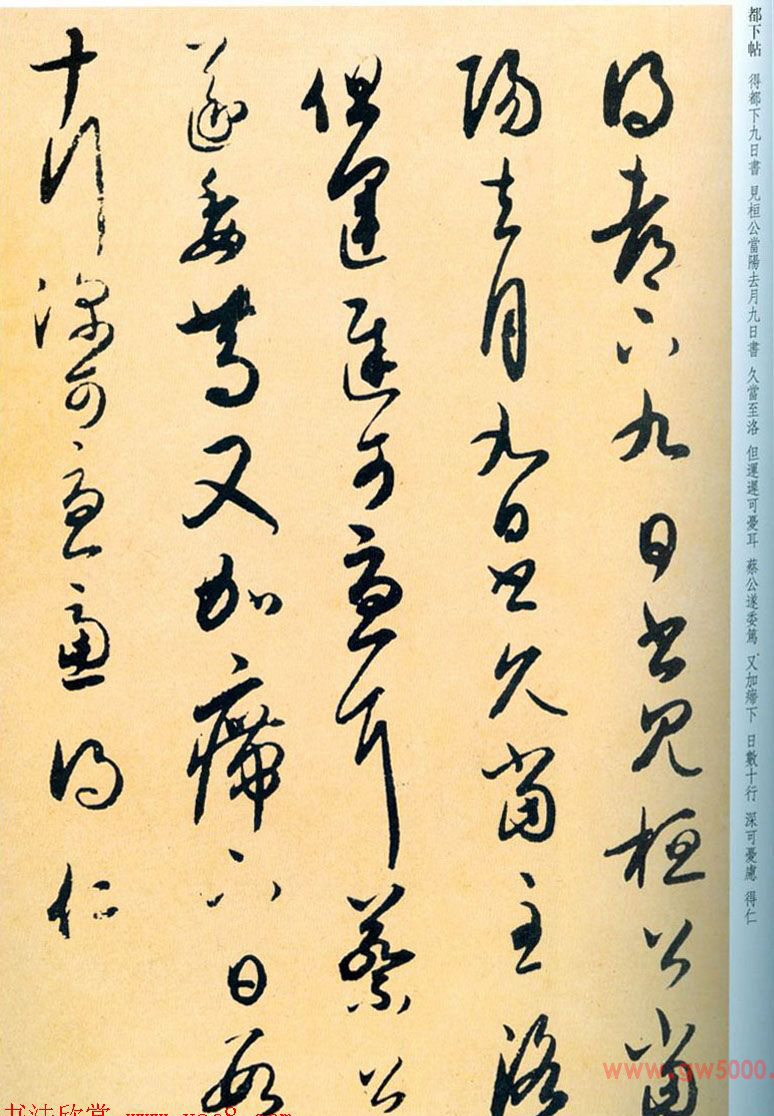 都下帖 得都下九日書 見桓公當陽去月九日書 久當至洛 但運遲可憂耳 蔡公遂委篤 又加㿃下 日數十行 深可憂慮 得仁
得都下九日書見桓公當
陽去月九日書久當至洛
但運遲可憂耳蔡公
遂委篤又加㿃下日數
十行深可憂慮得仁
www.gw5000.
书法欣赏 www.yac8.com